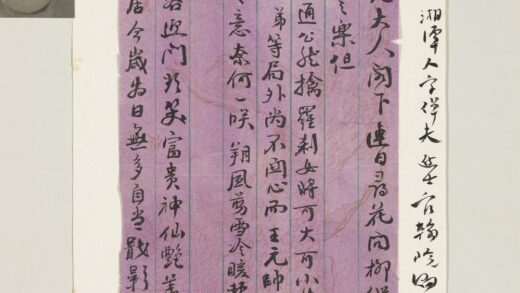 湘潭人字伴夫官翰院
大人閣下連日尋花問柳
樂但
通公然擒羅刹女將可大可小
弟等局外尚不関心而王元帥
意奈何一咲朔風翦雪冷暖
迎門笑富貴神仙艷羨
居今歲為日無多自當戢影